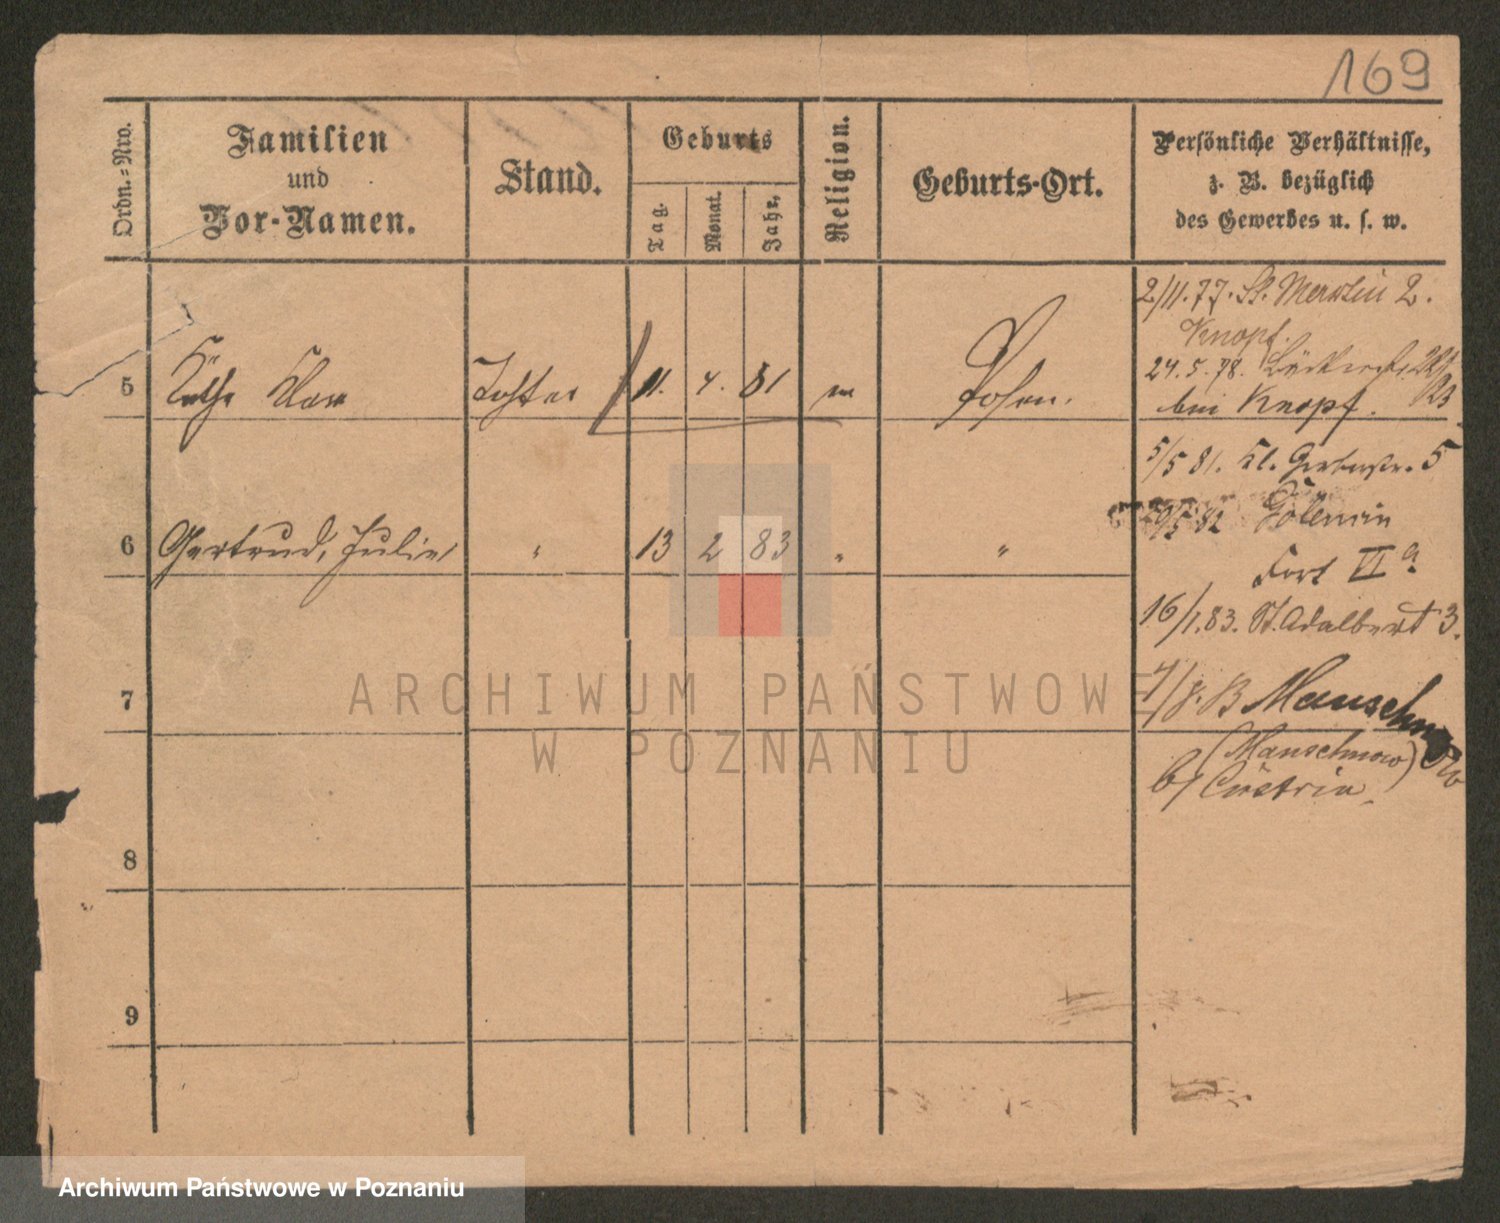 169
Ordn.-Nro.
Familien
und
Vor-Namen.
Stand.
Geburts
Tag.
Monat.
Jahr.
Religion.
Geburts-Ort.
Persönliche Verhältnisse,
z. B. bezüglich
des Gewerbes u. s. w.
2/11. 77. St. Martin 2.
Knopf.
5 Käthe Klara Tochter 11. 4. 81 Posen.
24. 5. 78.
bei Knopf.
5/5 81. Kl. Gerberstr. 5
6 Gertrud, Julie " 13 2 83 " "
82
Fort VI a
16/1. 83. St. Adalbert 3.
7
Manschnow
(Manschnow)
b/ Cüstrin
8
9
ARCHIWUM PAŃSTWOWE
W POZNANIU
Archiwum Państwowe w Poznaniu